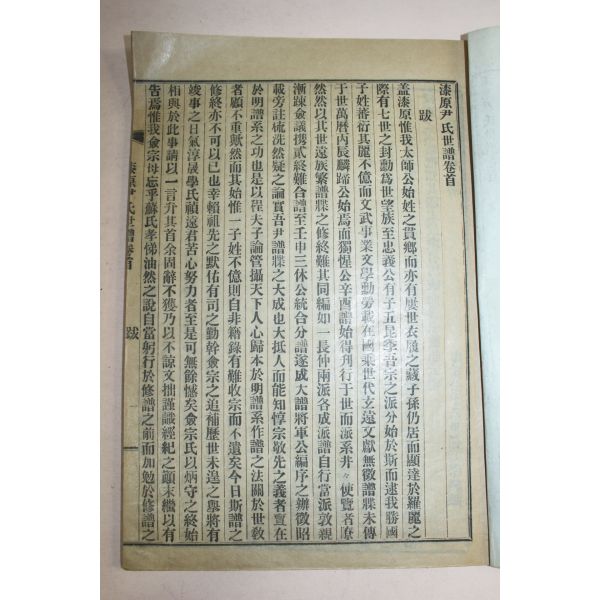 漆原尹氏世譜卷首
跋
盖漆原惟我太師公始姓之貫鄉而亦有屢世衣履之藏子孫仍居而顯達於羅麗之
際有七世之封勳爲世望族至忠義公有子五是李吾宗之派分始於斯而逮我勝國
子姓蕃衍其麗不億而文武事業文學勳勞載在國乘世代玄遠文獻無徵譜牒未傳
于世萬曆丙辰麟蹄公始焉而獨惺公辛酉譜始得刊行于世而派系井々使覽者瞭
然然以其世遠族繁譜牒之修終難其同編如一長仲兩派各成派譜自行當派敦親
漸踈僉議携貳終難合譜至壬申三休公統合分譜遂成大譜將軍公編序之辦徵昭
載旁註梳洗然疑之論實吾尹譜牒之大成也大抵人而能知惇宗敬先之義者亶在
於明譜系之功也是以程夫子論管攝天下人心歸本於明譜系作譜之法關於世敎
者顧不重歟然而其始惟一子姓不億則自非籍錄有難收宗而不遺矣今日斯譜之
修終亦不可以已也幸賴祖先之默佑有司之勤幹僉宗之追補歷世未遑之擧將有
竣事之日氣淳晟學氏禎遠君苦心努力者至是可無餘憾矣僉宗氏以炳守之終始
相與於此事請以一言弁其首余固辭不獲乃以不諒文拙謹識經紀之顚末繼以有
告焉惟我僉宗毋忘乎蘇氏孝悌油然之說自當躬行於修譜之前而加勉於修譜之
漆原尹氏世譜卷首
跋
一